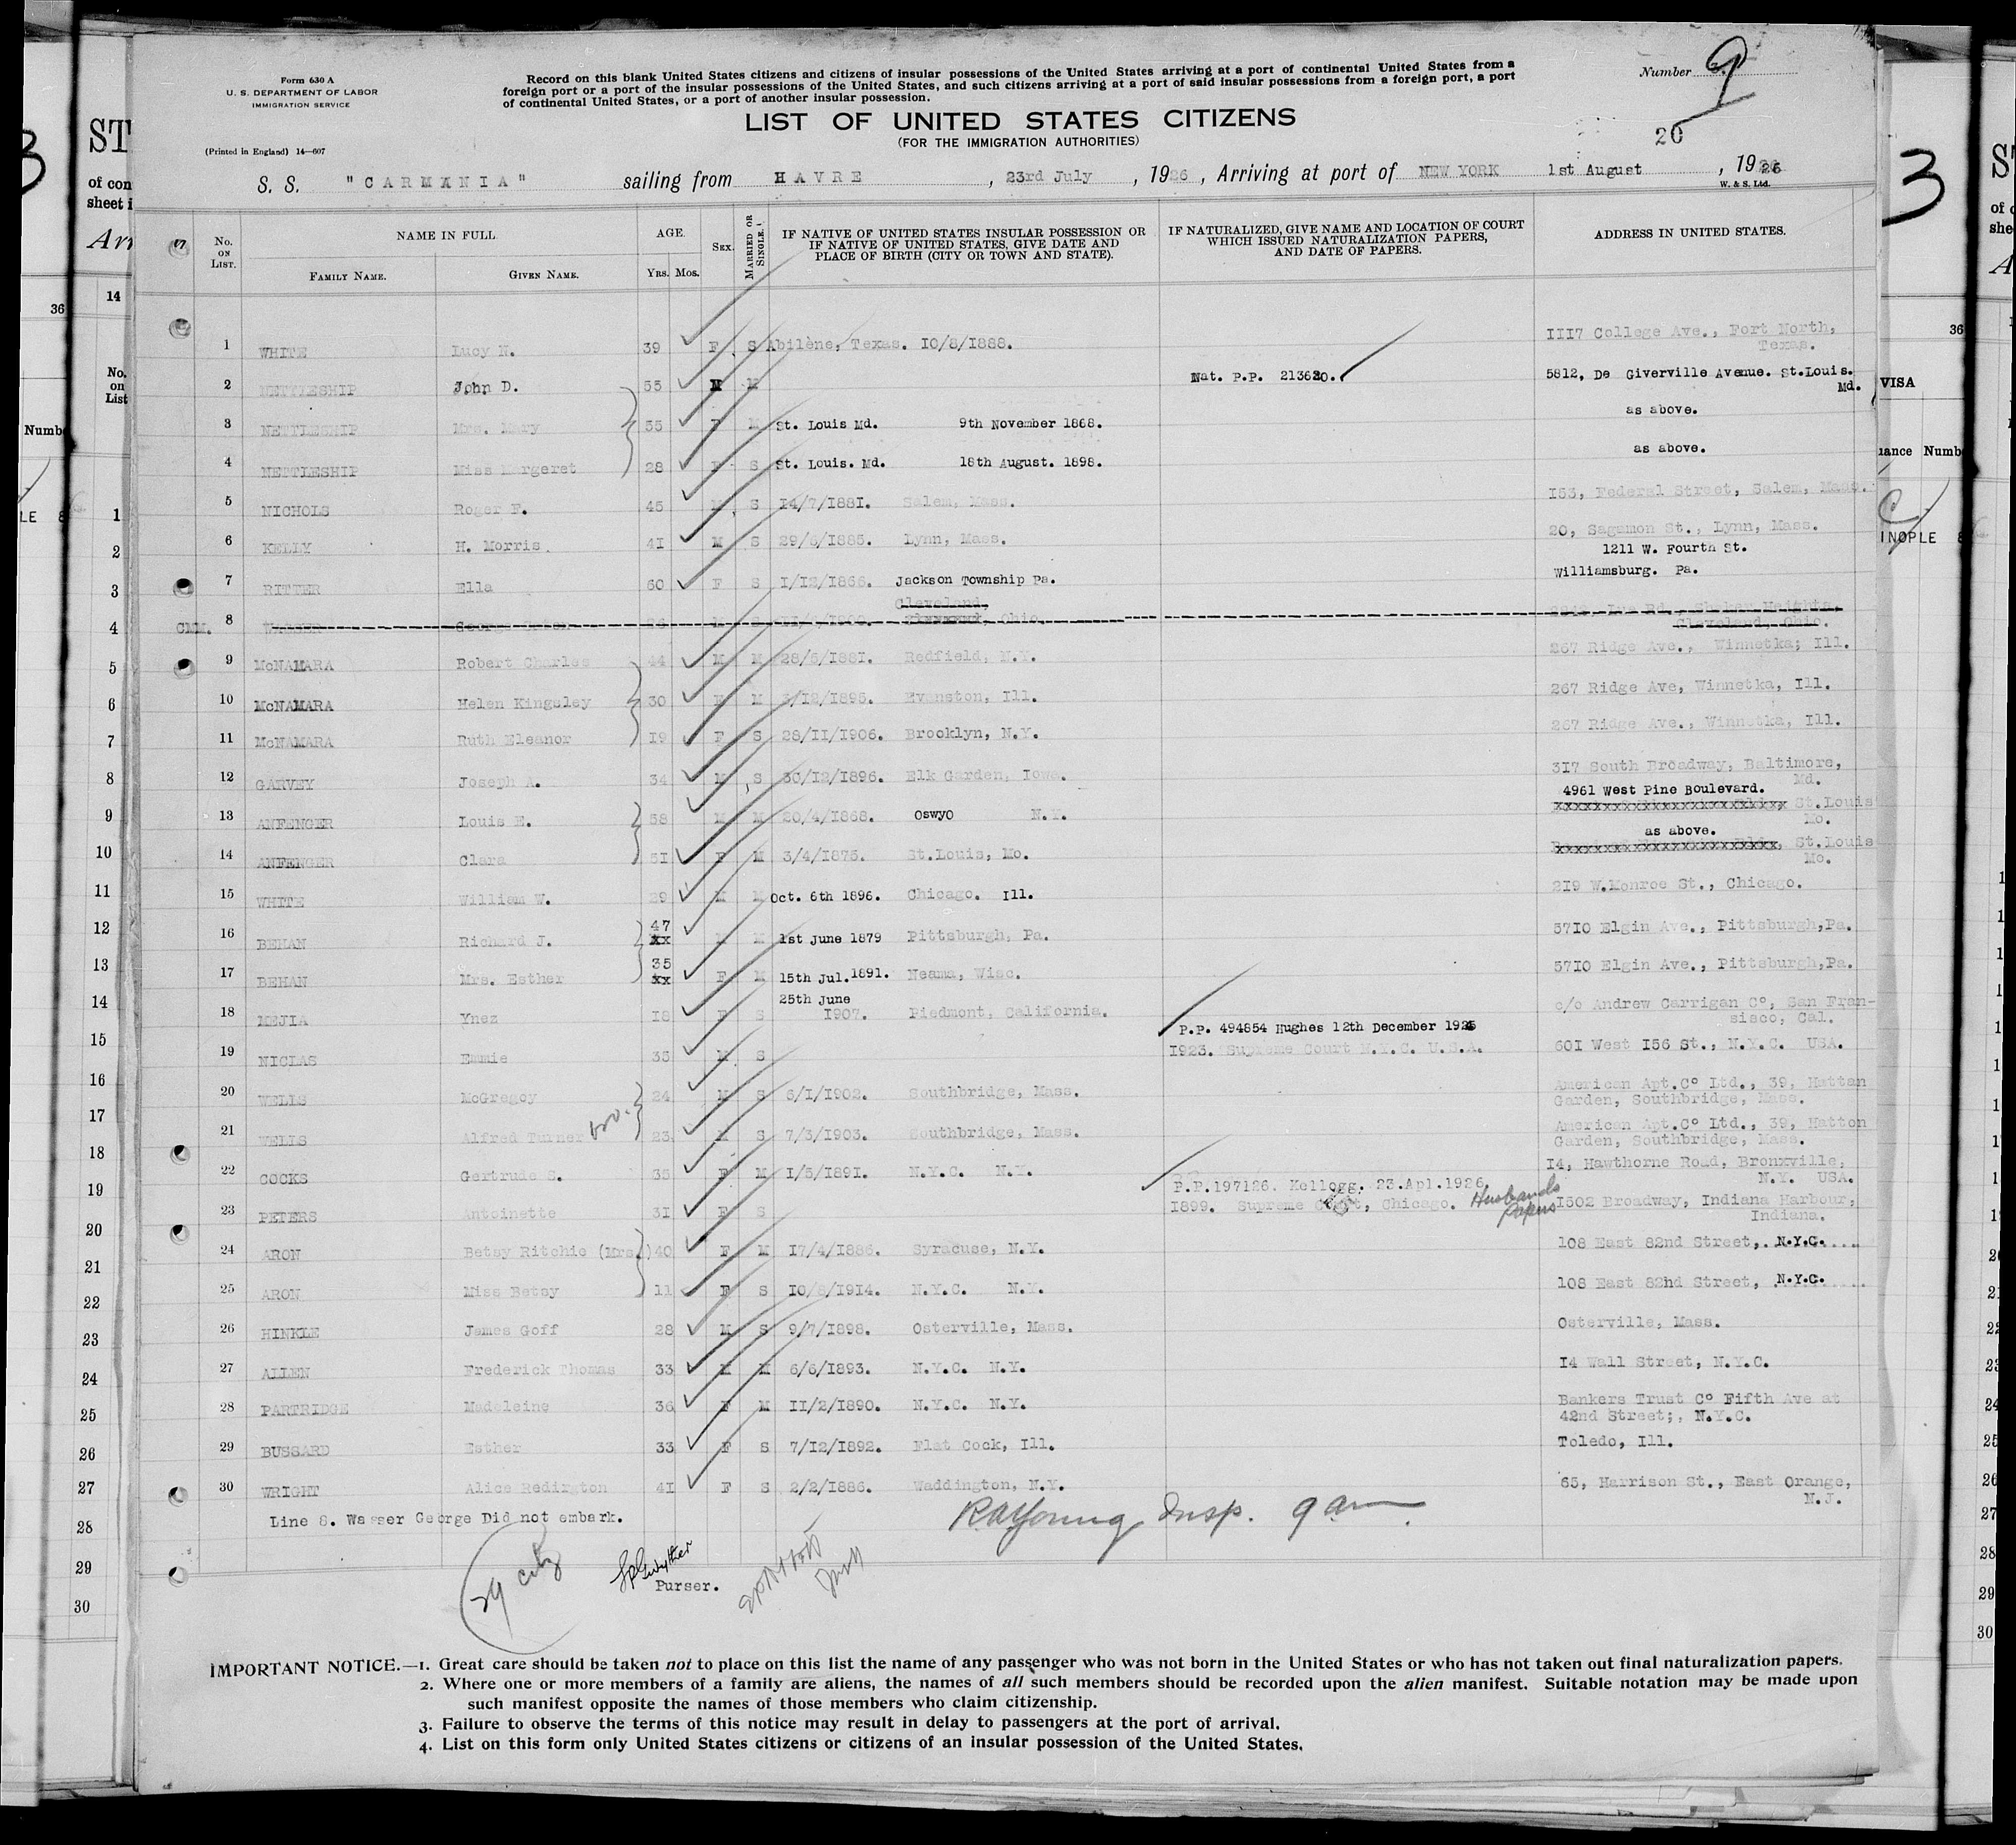 Form 630 A
U. S. DEPARTMENT OF LABOR
IMMIGRATION SERVICE
(Printed in England) 14—607
Record on this blank United States citizens and citizens of insular possessions of the United States arriving at a port of continental United States from a
foreign port or a port of the insular possessions of the United States, and such citizens arriving at a port of said insular possessions from a foreign port, a port
of continental United States, or a port of another insular possession.
Number 9
LIST OF UNITED STATES CITIZENS
(FOR THE IMMIGRATION AUTHORITIES)
20
S. S. "CARMANIA" sailing from HAVRE, 23rd July, 1926, Arriving at port of NEW YORK 1st August, 1926
W. & S. Ltd.
No. ON LIST. NAME IN FULL FAMILY NAME. GIVEN NAME. AGE. YRS. MOS. SEX. MARRIED OR SINGLE. IF NATIVE OF UNITED STATES INSULAR POSSESSION OR IF NATIVE OF UNITED STATES, GIVE DATE AND PLACE OF BIRTH (CITY OR TOWN AND STATE). IF NATURALIZED, GIVE NAME AND LOCATION OF COURT WHICH ISSUED NATURALIZATION PAPERS, AND DATE OF PAPERS. ADDRESS IN UNITED STATES.
1 WHITE Lucy N. 39 F S Abilène, Texas. 10/8/1888. 1117 College Ave., Fort North, Texas.
2 NETTLESHIP John D. 55 M M Nat. P.P. 213620. 5812, De Giverville Avenue. St.Louis. Md.
3 NETTLESHIP Mrs. Mary 55 F M St. Louis Md. 9th November 1868. as above.
4 NETTLESHIP Miss Margeret 28 F S St. Louis. Md. 18th August. 1898. as above.
5 NICHOLS Roger F. 45 M S 14/7/1881. Salem, Mass. 153, Federal Street, Salem, Mass.
6 KELLY H. Morris. 41 M S 29/8/1885. Lynn, Mass. 20, Sagamon St., Lynn, Mass.
7 RITTER Ella 60 F S 1/12/1865. Jackson Township Pa. 1211 W. Fourth St. Williamsburg. Pa.
CMM. 8 WASSER George Cleveland, Ohio. Cleveland, Ohio.
9 McNAMARA Robert Charles 44 M M 28/6/1881. Redfield, N.Y. 267 Ridge Ave., Winnetka; Ill.
10 McNAMARA Helen Kingsley 30 F M 3/12/1895. Evanston, Ill. 267 Ridge Ave, Winnetka, Ill.
11 McNAMARA Ruth Eleanor 19 F S 28/11/1906. Brooklyn, N.Y. 267 Ridge Ave., Winnetka, Ill.
12 GARVEY Joseph A. 34 M S 30/12/1896. Elk Garden, Iowa. 317 South Broadway, Baltimore, Md.
13 ANFENGER Louis E. 58 M M 20/4/1868. Oswyo N.Y. 4961 West Pine Boulevard. St.Louis Mo.
14 ANFENGER Clara 51 F M 3/4/1875. St.Louis, Mo. as above. St.Louis Mo.
15 WHITE William W. 29 M M Oct. 6th 1896. Chicago. Ill. 219 W.Monroe St., Chicago.
16 BEHAN Richard J. 47 xx M M 1st June 1879 Pittsburgh, Pa. 5710 Elgin Ave., Pittsburgh,Pa.
17 BEHAN Mrs. Esther 35 xx F M 15th Jul. 1891. Neama, Wisc. 5710 Elgin Ave., Pittsburgh,Pa.
18 MEJIA Ynez 18 F S 25th June 1907. Piedmont, California. c/o Andrew Carrigan Co, San Fran-sisco, Cal.
19 NICLAS Emmie 35 M S P.P. 494854 Hughes 12th December 1925 1923. Supreme Court N.Y.C. U.S.A. 601 West 156 St., N.Y.C. USA.
20 WELLS McGregoy 24 M S 6/1/1902. Southbridge, Mass. American Apt.Co Ltd., 39, Hattan Garden, Southbridge, Mass.
21 WELLS Alfred Turner bro. 23 M S 7/3/1903. Southbridge, Mass. American Apt.Co Ltd., 39, Hatton Garden, Southbridge, Mass.
22 COCKS Gertrude S. 35 F M 1/5/1891. N.Y.C. N.Y. 14, Hawthorne Road, Bronxville, N.Y. USA.
23 PETERS Antoinette 31 F S P.P.197126. Kellogg. 23.Apl.1926 1899. Supreme Court, Chicago. Husbands Papers 1502 Broadway, Indiana Harbour, Indiana.
24 ARON Betsy Ritchie (Mrs.) 40 F M 17/4/1886. Syracuse, N.Y. 108 East 82nd Street, N.Y.C.
25 ARON Miss Betsy 11 F S 10/8/1914. N.Y.C. N.Y. 108 East 82hd Street, N.Y.C.
26 HINKLE James Goff 28 M S 9/7/1898. Osterville, Mass. Osterville, Mass.
27 ALLEN Frederick Thomas 33 M M 6/6/1893. N.Y.C. N.Y. 14 Wall Street, N.Y.C.
28 PARTRIDGE Madeleine 36 F M 11/2/1890. N.Y.C. N.Y. Bankers Trust Co Fifth Ave at 42nd Street;, N.Y.C.
29 BUSSARD Esther 33 F S 7/12/1892. Flat Cock, Ill. Toledo, Ill.
30 WRIGHT Alice Redington 41 F S 2/2/1886. Waddington, N.Y. 65, Harrison St., East Orange, N.J.
Line 8. Wasser George Did not embark.
RA Young Insp. 9 am
29 city
Purser.
IMPORTANT NOTICE.—1. Great care should be taken not to place on this list the name of any passenger who was not born in the United States or who has not taken out final naturalization papers.
2. Where one or more members of a family are aliens, the names of all such members should be recorded upon the alien manifest. Suitable notation may be made upon
such manifest opposite the names of those members who claim citizenship.
3. Failure to observe the terms of this notice may result in delay to passengers at the port of arrival.
4. List on this form only United States citizens or citizens of an insular possession of the United States.